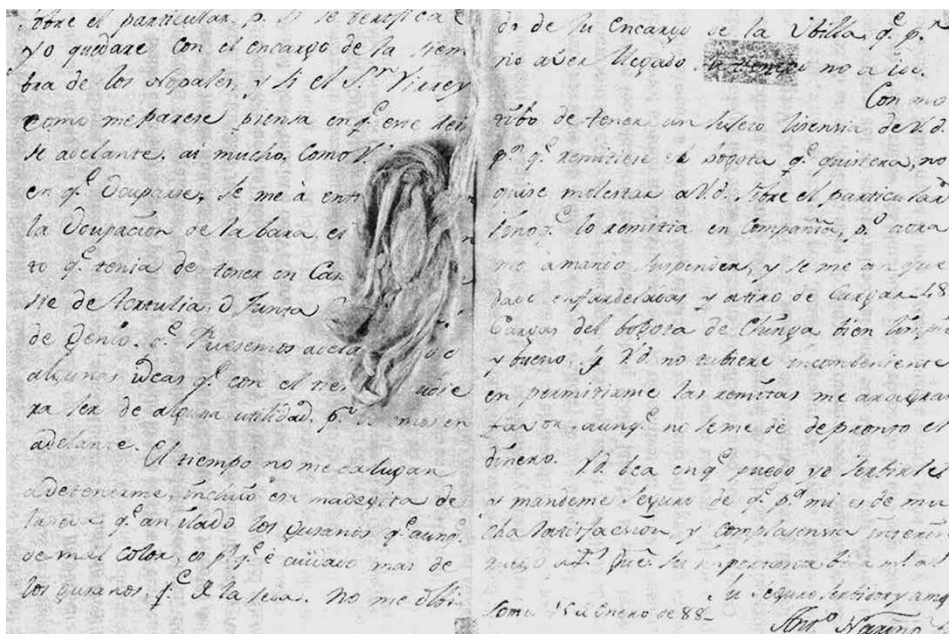 sobre el particular, p. si se berifica
yo quedare con el encargo de la siem
bra de los Nopales, y si el Sr. Virrey
como me parese piensa en qe. este
se adelante, ai mucho, como V.
en qe. Ocuparse, se me à
la Ocupacion de la bara, el
to qe. tenia de tener en
sie de tertulia, ò Junta
de Genio, qe. Pusiesemos
algunas ideas qe. con el
ra ser de alguna utilidad, en
adelante.
El tiempo no me da lugar
a detenerme, incluío esa madegita de
la seda qe. an ilado los gusanos qe. aunqe.
de mal color, es pr. qe. è cuidado mas de
los gusanos, qe. de la seda. No me
do de su Encargo de la Ubilla, qe. pr.
no aver llegado no a ido.
Con mo
tibo de tener un sujeto lisensia de V.d.
pa. qe. remitiese el bogota qe. quisiera, no
quise molestar a V.d. sobre el particular
sino qe. lo remitia en Compañia, pe. aora
me a mandado suspender, y se me an que
dado enfardeladas y a tiro de Cargar 48
Cargas del bogota de Chinga bien limpio
y bueno, si V.d. no tubiere incombeniente
en permitirme las remitas me ara gran
fabor, aunqe. no se me dè de pronto el
dinero. V.d. bea en qe. puedo yo serbirle
y mandeme seguro de qe. pa. mi es de mu
cha satisfaccion, y complasensia
ruego a Ds. gue. su importante bida ms. as.
Su seguro serbidor y amo.
15 de Enero de 88
Anto. Nariño